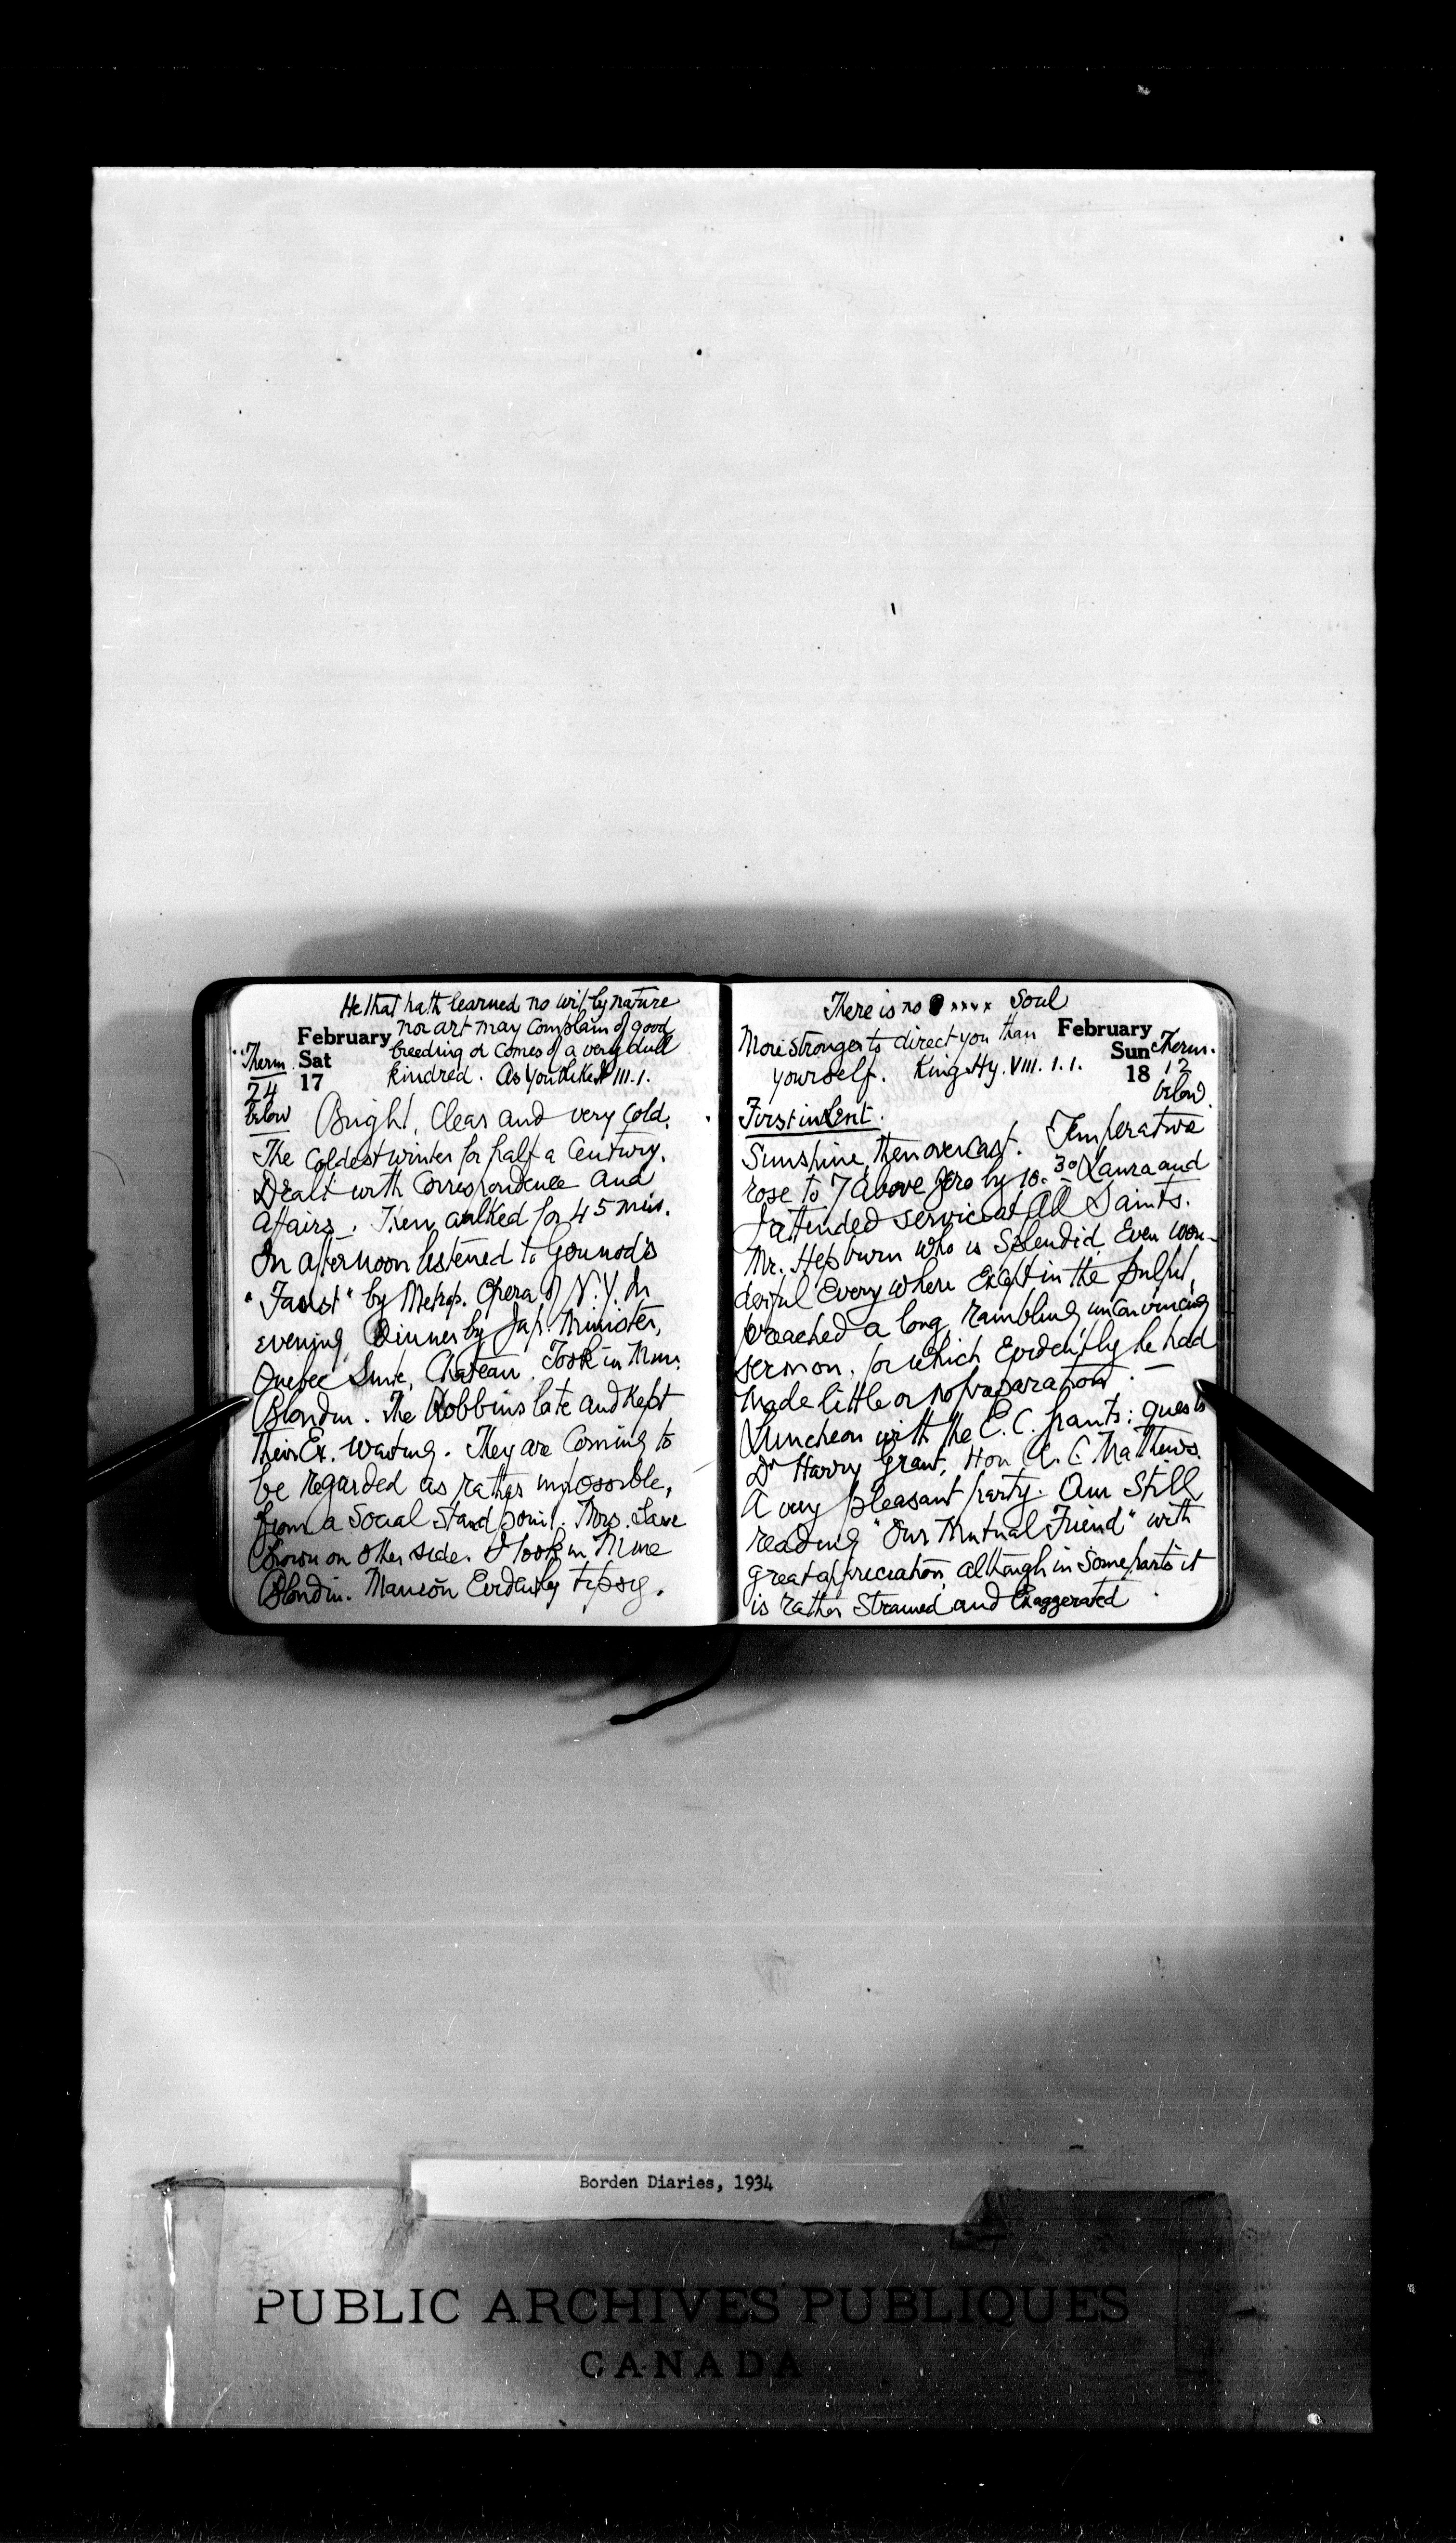 He that hath learned no wit by nature
nor art may complain of good
breeding or comes of a very dull
kindred. As You Like It III.1.
February
Sat
17
Therm.
24
below
Bright, Clear and very Cold.
The Coldest winter for half a Century.
Dealt with Correspondence and
affairs. Then walked for 45 min.
In afternoon listened to Gounod's
"Faust" by Metrop. Opera of N.Y. In
evening Dinner by Jap. Minister,
Quebec Suite, Chateau. Took in Mme.
Blondin. The Robbins late and Kept
Their Ex. waiting. They are Coming to
be regarded as rather impossible,
from a Social Stand point. Mrs.
Brown on other side. I took in Mme
Blondin. Manion Evidently tipsy.
There is no xxxx Soul
More stronger to direct you than
yourself. King Hy. VIII. 1.1.
February
Sun
18
Therm.
12
below.
First in Lent.
Sunshine, then overcast. Temperature
rose to 7 above zero by 10.30 Laura and
I attended service at All Saints.
Mr. Hepburn who is Splendid, Even won-
derful Every where Except in the pulpit,
preached a long, rambling unconvincing
sermon, for which Evidently he had
made little or no preparation. —
Luncheon with the E.C. Grants: guests
Dr Harry Grant, Hon. R. C Mathews.
A very pleasant party. Am Still
reading "Our Mutual Friend" with
great appreciation, although in Some parts it
is rather Strained and Exaggerated
Borden Diaries, 1934
PUBLIC ARCHIVES PUBLIQUES
CANADA